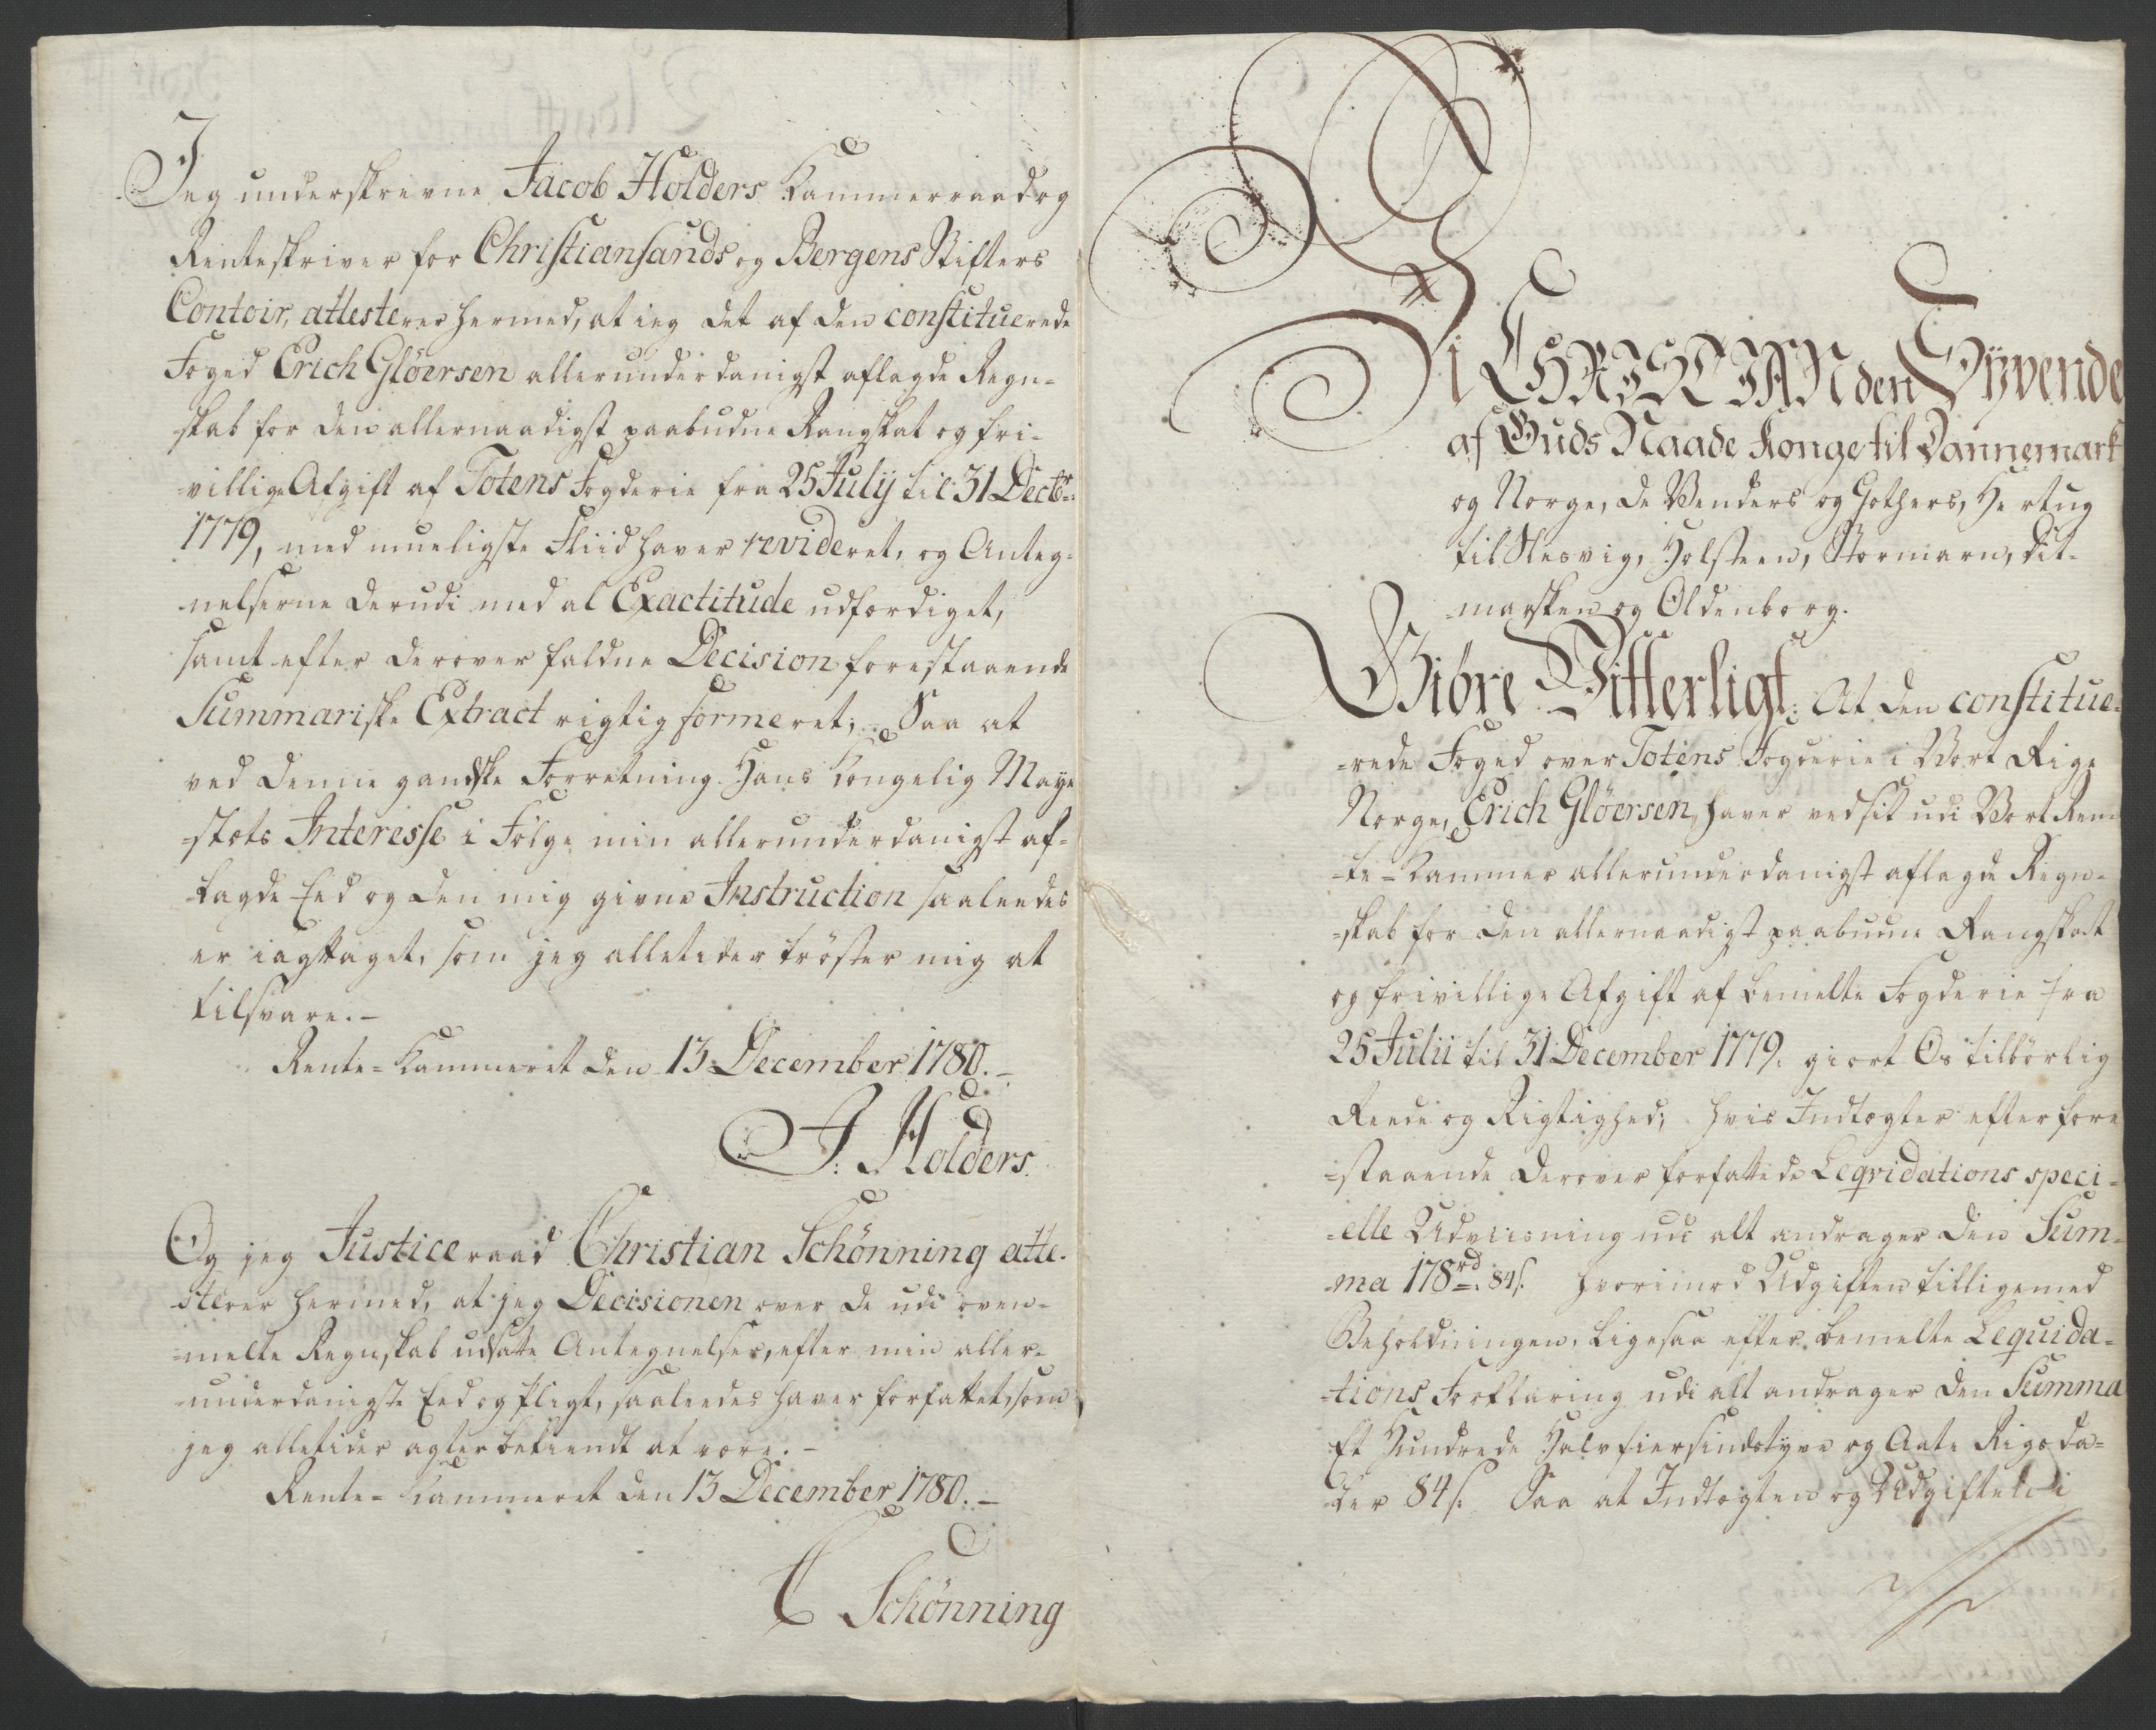 Jeg underskrevne Jacob Holders Kammerraad og
Renteskriver for Christiansands og Bergens Stifters
Contoir, attesterer hermed, at ieg det af den constituerede
Foged Erich Glöersen allerunderdanigst aflagde Regn-
skab for den allernaadigst paabudne Rangskat og fri-
villige Afgift af Totens Fogderie fra 25 Julij til 31 Decbr:
1779, med mueligste Fliid haver revideret, og Anteg-
nelserne derudi med al Exactitude udfordiget,
samt efter derover faldne Decision forestaaende
Summariske Extract rigtig formeret; Saa at
ved denne gandske Forretning Hans Kongelig Maye
-stets Interesse i Fölge min allerunderdanigst af-
lagde Eed og den mig givne Instruction saaleedes
er iagttaget, som jeg alletider tröster mig at
tilsvare.-
Rente-Kammeret den 13 December 1780.-
J. Holders.
Og jeg Justiceraad Christian Schönning atte-
sterer hermed, at jeg Decisionen over de udi oven-
-melte Regnskab udsatte Antegnelser, efter min aller-
-underdanigste Eed og Pligt, saaleedes haver forfattet, som
jeg alletider agter bekiendt at være.-
Rente-Kammeret den 13 December 1780.-
C Schönning
Vi CHRISTIAN den Syvende
af Guds Naade Konge til Dannemark
og Norge, de Venders og Gothers, Hertug
til Slesvig, Holsteen, Stormarn, Dit-
marsken og Oldenborg.
Giöre Vitterligt: At den constitue-
-rede Foged over Totens Fogderie i Vort Rige
Norge, Erich Glöersen, haver ved sit udi Vort Ren-
-te-Kammer allerunderdanigst aflagde Regn-
-skab for den allernaadigst paabudne Rangskat
og frivillige Afgift af bemelte Fogderie fra
25 Julii til 31 December 1779. giort Os tilbörlig
Reede og Rigtighed; hvis Indtægter efter fore
-staaende derover forfattede Leqvidations speci-
-elle Udviisning udi alt andrager den Sum-
-ma 178 rd. 84 s. hvorimod Udgiften tilligemed
Beholdningen, ligesaa efter bemelte Lequida-
-tions Forklaring udi alt andrager den Summa
Et Hundrede Halvfiersindstyve og Aate Rigsda-
ler 84 s. Saa at Indtægten og Udgiften i